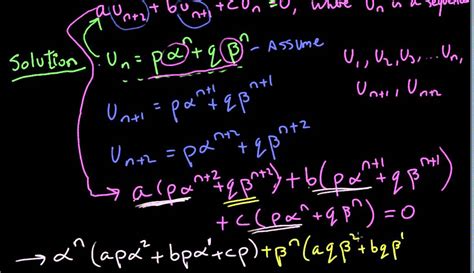 aUₙ₊₂ + bUₙ₊₁ + cUₙ = 0, where Uₙ is a sequence
Solution
Uₙ = pαⁿ + qβⁿ – Assume
U₁, U₂, U₃, ... Uₙ,
Uₙ₊₁, Uₙ₊₂
Uₙ₊₁ = pαⁿ⁺¹ + qβⁿ⁺¹
Uₙ₊₂ = pαⁿ⁺² + qβⁿ⁺²
→ a(pαⁿ⁺² + qβⁿ⁺²) + b(pαⁿ⁺¹ + qβⁿ⁺¹)
+ c(pαⁿ + qβⁿ) = 0
→ αⁿ(apα² + bpα¹ + cp) + βⁿ(aqβ² + bqβ¹